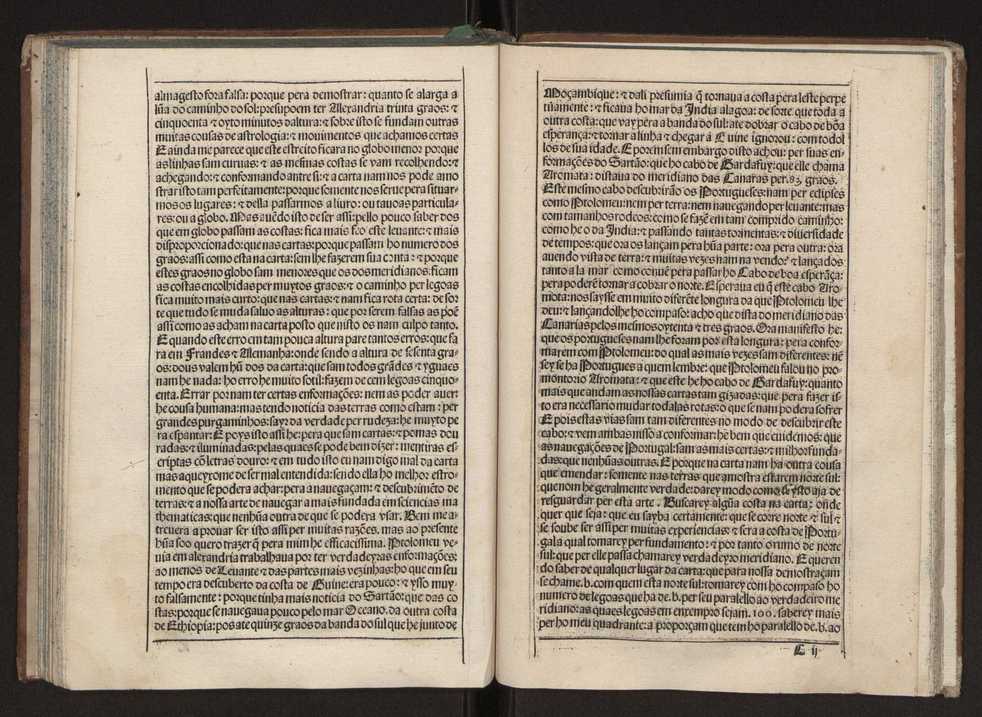 almagesto fora falsa: porque pera demostrar: quanto se alarga a
lũa do caminho do sol: presupoem ter Alexandria trinta graos: ⁊
cinquoenta ⁊ oyto minutos daltura: ⁊ sobre isto se fundam outras
muitas cousas de astrologia: ⁊ mouimentos que achamos certas
E ainda me parece que este estreito ficara no globo menor porque
as linhas sam curuas: ⁊ as mesmas costas se vam recolhendo: ⁊
achegando: ⁊ conformando antre si: ⁊ a carta nam nos pode amo
strar isto tam perfeitamente: porque somente nos serue pera situar-
mos os lugares: ⁊ della passarmos a liuro: ou tauoas particula-
res: ou a globo. Mas auẽdo isto de ser assi: pello pouco saber dos
que em globo passam as costas: fica mais feo este leuante: ⁊ mais
disproporcionado: que nas cartas: porque passam ho numero dos
graos: assi como esta na carta: sem lhe fazerem sua conta: ⁊ porque
estes graos no globo sam menores que os dos meridianos: ficam
as costas encolhidas per muytos graos: ⁊ o caminho per legoas
fica muito mais curto: que nas cartas: ⁊ nam fica rota certa: de sor
te que tudo se muda saluo as alturas: que por serem falsas as põe
assi como as acham na carta posto que nisto os nam culpo tanto.
E quando este erro em tam pouca altura pare tantos erros: que fa
ra em Frandes ⁊ Alemanha: onde sendo a altura de sesenta gra-
os: dous valem hũ dos da carta: que sam todos grãdes ⁊ yguaes
nam he nada: ho erro he muito sotil: fazem de cem legoas cinquo-
enta. Errar por nam ter certas enformações: nem as poder auer:
he cousa humana: mas tendo noticia das terras como estam: per
grandes purgaminhos: sayr da verdade per rudeza: he muyto pe
ra espantar: E poys isto assi he: pera que sam cartas: ⁊ pomas dou
radas: ⁊ iluminadas: pelas quaes se pode bem dizer: mentiras es-
criptas cõ letras douro: ⁊ em tudo isto eu nam digo mal da carta
mas aqueyxome de ser mal entendida: sendo ella ho melhor estro-
mento que se podera achar: pera a nauegaçam: ⁊ descubrimẽto de
terras: ⁊ a nossa arte de nauegar a mais fundada em sciencias ma
thematicas: que nenhũa outra de que se podera vsar. Bem me a-
treuera a prouar ser isto assi per muitas razões. mas ao presente
hũa soo quero trazer q̃ pera mim he efficacissima. Ptolomeu ve-
uia em alexandria trabalhaua por ter verdadeyras enformações:
ao menos de Leuante ⁊ das partes mais vezinhas: ho que em seu
tempo era descuberto da costa de Guine: era pouco: ⁊ ysso muy-
to falsamente: porque tinha mais noticia do Sartão: que das co
stas: porque se nauegaua pouco pelo mar Oceano. da outra costa
de Ethiopia: pos ate quinze graos da banda do sul que he junto de
Moçambique: ⁊ dali presumia q̃ tornaua a costa pera leste perpe
tuamente: ⁊ ficaua ho mar da India alagoa: de sorte que toda a
outra costa: que vay pera a banda do sul: ate dobrar o cabo de bõa
esperança: ⁊ tornar a linha ⁊ chegar a Guine ignorou: com todol
los de sua idade. E porem sem embargo disto achou: per suas en-
formações do Sartão: que ho cabo de Gardafuy: que elle chama
Aromata: distaua do meridiano das Canarias per .83. graos.
Este mesmo cabo descubrirão os Portugueses: nam per eclipses
como Ptolomeu: nem per terra: nem nauegando per leuante: mas
com tamanhos rodeos: como se fazẽ em tam comprido caminho:
como he o da India: ⁊ passando tantas tormentas: ⁊ diuersidade
de tempos: que ora os lançam pera hũa parte: ora pera outra: ora
auendo vista de terra: ⁊ muitas vezes nam na vendo: ⁊ lançados
tanto a la mar como conuẽ pera passar ho Cabo de boa esperãça:
pera poderẽ tornar a cobrar o norte. Esperaua eu q̃ este cabo Aro-
mota: nos saysse em muito diferẽte longura da que Ptolomeu lhe
deu: ⁊ lançandolhe ho compaso: acho que dista do meridiano das
Canarias pelos mesmos oytenta ⁊ tres graos. Ora manifesto he:
que os portugueses nam lhe foram por esta longura: pera confor-
marem com Ptolomeu: do qual as mais vezes sam diferentes: nẽ
sey se ha Portugues a quem lembre: que Ptolomeu falou no pro-
montorio Aromata: ⁊ que este he ho cabo de Gardafuy: quanto
mais que andam as nossas cartas tam gizadas: que pera fazer is-
to era necessario mudar todalas rotas: o que se nam podera sofrer
E pois estas vias sam tam diferentes no modo de descubrir este
cabo: ⁊ vem ambas nisso a conformar: he bem que cuidemos: que
as nauegações de Portugal: sam as mais certas: ⁊ milhor funda-
das: que nenhũas outras. E porque na carta nam ha outra cousa
que emendar: somente nas terras que amostra estarem norte sul:
que nom he geralmente verdade: darey modo como se ysto aja de
resguardar per esta arte. Buscarey algũa costa na carta: onde
quer que seja: que eu sayba certamente: que se corre norte ⁊ sul ⁊
se soube ser assi per muitas experiencias: ⁊ sera a costa de Portu-
gal a qual tomarey per fundamento: ⁊ por tanto o rumo de norte
sul: que per elle passa chamarey verdadeyro meridiano. E queren
do saber de qualquer lugar da carta: que para nossa demostraçam
se chame .b. com quem esta norte sul: tomarey com ho compaso ho
numero de legoas que ha de .b. per seu paralello ao verdadeiro me
ridiano: as quaes legoas em exempro sejam. 100. saberey mais
per ho meu quadrante: a proporçam que tem ho paralello de .b. ao
E ij